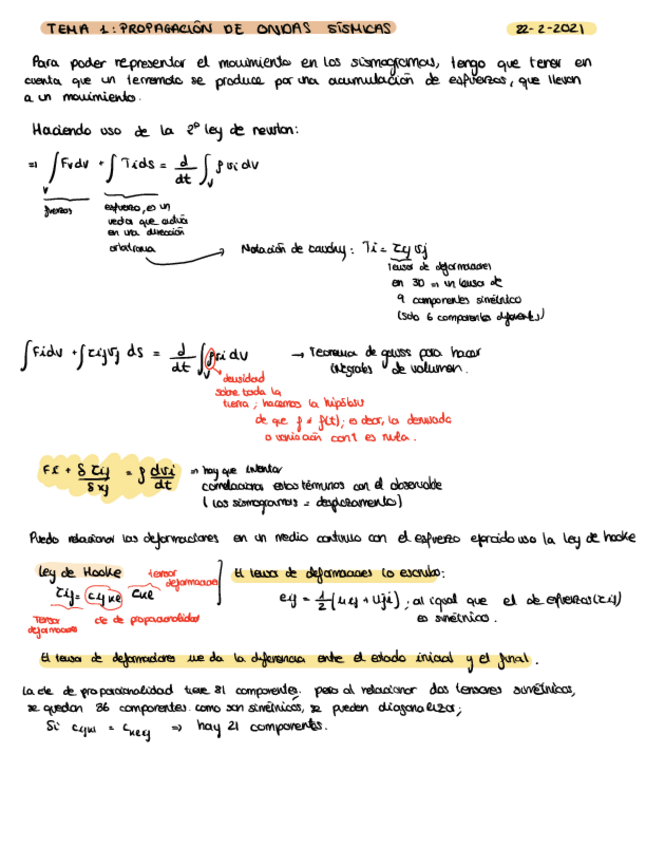 TEMA 1: PROPAGACIÓN DE ONDAS SÍSMICAS 22-2-2021
Para poder representar el movimiento en los sismogramas, tengo que tener en
cuenta que un terremoto se produce por una acumulación de esfuerzos, que llevan
a un movimiento.
Haciendo uso de la 2º ley de newton:
⇒ ∫ Fv dv + ∫ Ti ds = d/dt ∫v ρ vi dv
fuerzas
esfuerzo, es un
vector que actúa
en una dirección
ortotroma
Notación de cauchy: Ti = τij νj
Tensor de deformaciones
en 3D es un tensor de
9 componentes simétrico
(solo 6 componentes diferentes)
∫ Fi dv + ∫ τij νj ds = d/dt ∫v ρ vi dv → Teorema de gauss para hacer
integrales de volumen.
densidad
sobre toda la
tierra; hacemos la hipótesis
de que ρ ≠ f(t); es decir, la derivada
o variación con t es nula.
Fi + δ τij / δ xj = ρ dvi/dt ⇒ hay que intentar
correlacionar estos términos con el observable
(los sismogramas = desplazamiento)
Puedo relacionar las deformaciones en un medio continuo con el esfuerzo ejercido uso la ley de hooke
Ley de Hooke
tensor
deformaciones
τij = cijke eke
Tensor
deformaciones
cte de proporcionalidad
El tensor de deformaciones lo escribo:
eij = 1/2 (uij + uji); al igual que el de esfuerzos (τij)
es simétrico.
El tensor de deformaciones me da la diferencia entre el estado inicial y el final.
La cte de proporcionalidad tiene 81 componentes. pero al relacionar dos tensores simétricos,
se quedan 36 componentes. como son simétricos, se pueden diagonalizar;
Si cijke = ckeij ⇒ hay 21 components.